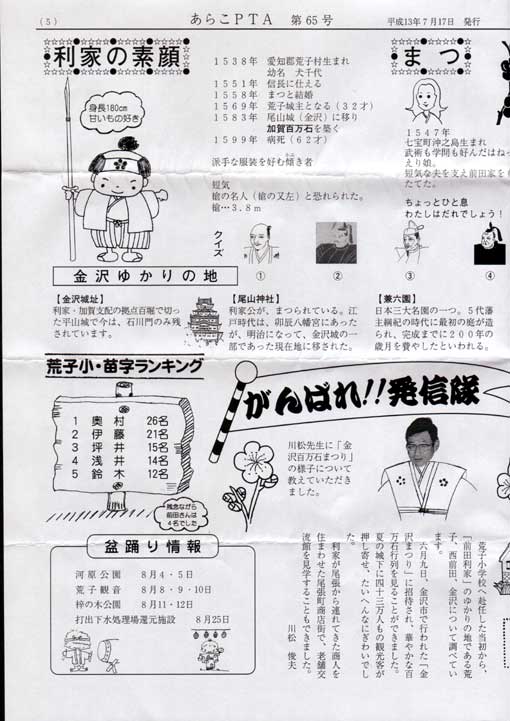 (5)
あらこPTA 第65号
平成13年7月17日 発行
利家の素顔
身長180cm
甘いもの好き
1538年 愛知郡荒子村生まれ
幼名 犬千代
1551年 信長に仕える
1558年 まつと結婚
1569年 荒子城主となる(32才)
1583年 尾山城(金沢)に移り
加賀百万石を築く
1599年 病死(62才)
派手な服装を好む傾き者
短気
槍の名人(槍の又左)と恐れられた。
槍…3.8m
まつ
1547年
七宝町沖之島生まれ
武術も学問も好んだはね
えり娘。
短気な夫を支え前田家を
たてた。
ちょっとひと息
わたしはだれでしょう!
クイズ
① ② ③ ④
金沢ゆかりの地
【金沢城址】
利家・加賀支配の拠点百堀で切っ
た平山城で今は、石川門のみ残
されています。
【尾山神社】
利家公が、まつられている。江
戸時代は、卯辰八幡宮にあった
が、明治になって、金沢城の一
部であった現在地に移された。
【兼六園】
日本三大名園の一つ。5代藩
主綱紀の時代に最初の庭が造
られ、完成までに200年の
歳月を費やしたといわれる。
荒子小・苗字ランキング
1 奥村 26名
2 伊藤 21名
3 坪井 15名
4 浅井 14名
5 鈴木 12名
残念ながら
前田さんは
4名でした
がんばれ!!発信隊
川松先生に「金
沢百万石まつり」
の様子について
教えていただき
ました。
荒子小学校へ赴任した当初から、
「前田利家」のゆかりの地である荒
子、西前田、金沢について調べてい
ます。
六月九日、金沢市で行われた「金
沢まつり」に招待され、華やかな百
万石行列を見ることができました。
夏の城下に四十三万人もの観光客が
押し寄せ、たいへんなにぎわいでし
た。
利家が尾張から連れてきた商人を
住まわせた尾張町商店街で、老舗交
流館を見学することもできました。
川松 俊夫
盆踊り情報
河原公園 8月4・5日
荒子観音 8月8・9・10日
梓の木公園 8月11・12日
打出下水処理場還元施設 8月25日